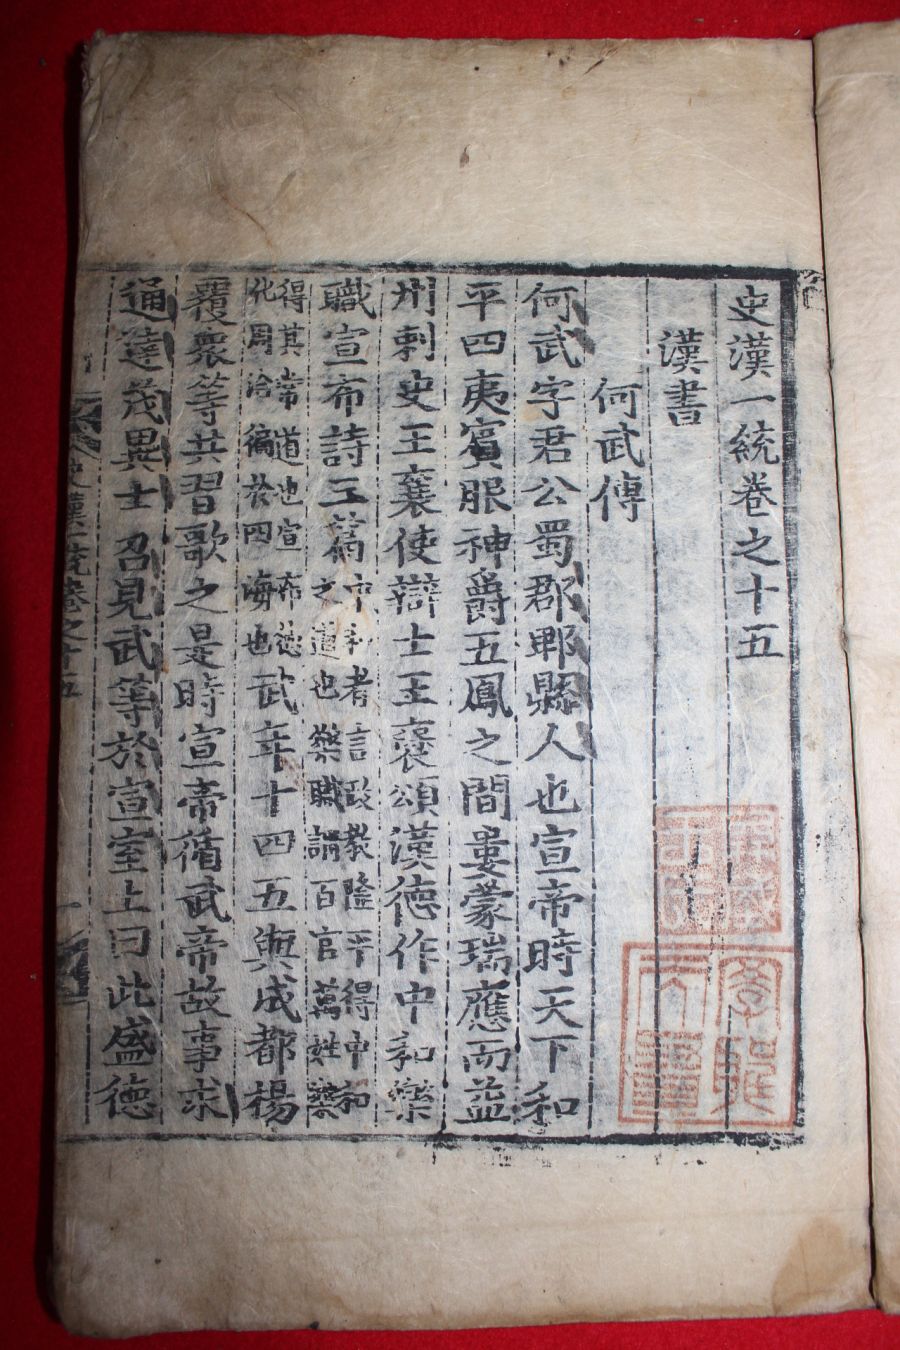 史漢一統卷之十五
漢書
何武傳
何武字君公蜀郡郫縣人也宣帝時天下和
平四夷賓服神爵五鳳之間婁蒙瑞應而益
州刺史王襄使辯士王褒頌漢德作中和樂
職宣布詩三篇中和者言政教隆平得中和之道也樂職謂百官萬姓樂
得其常道也宣布德化周洽徧於四海也武年十四五與成都楊
覆衆等共習歌之是時宣帝循武帝故事求
通達茂異士召見武等於宣室上曰此盛德
史漢一統卷之十五